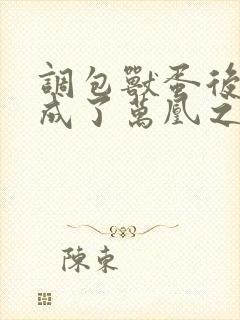 調包獸蛋後
成了萬凰之
陳東